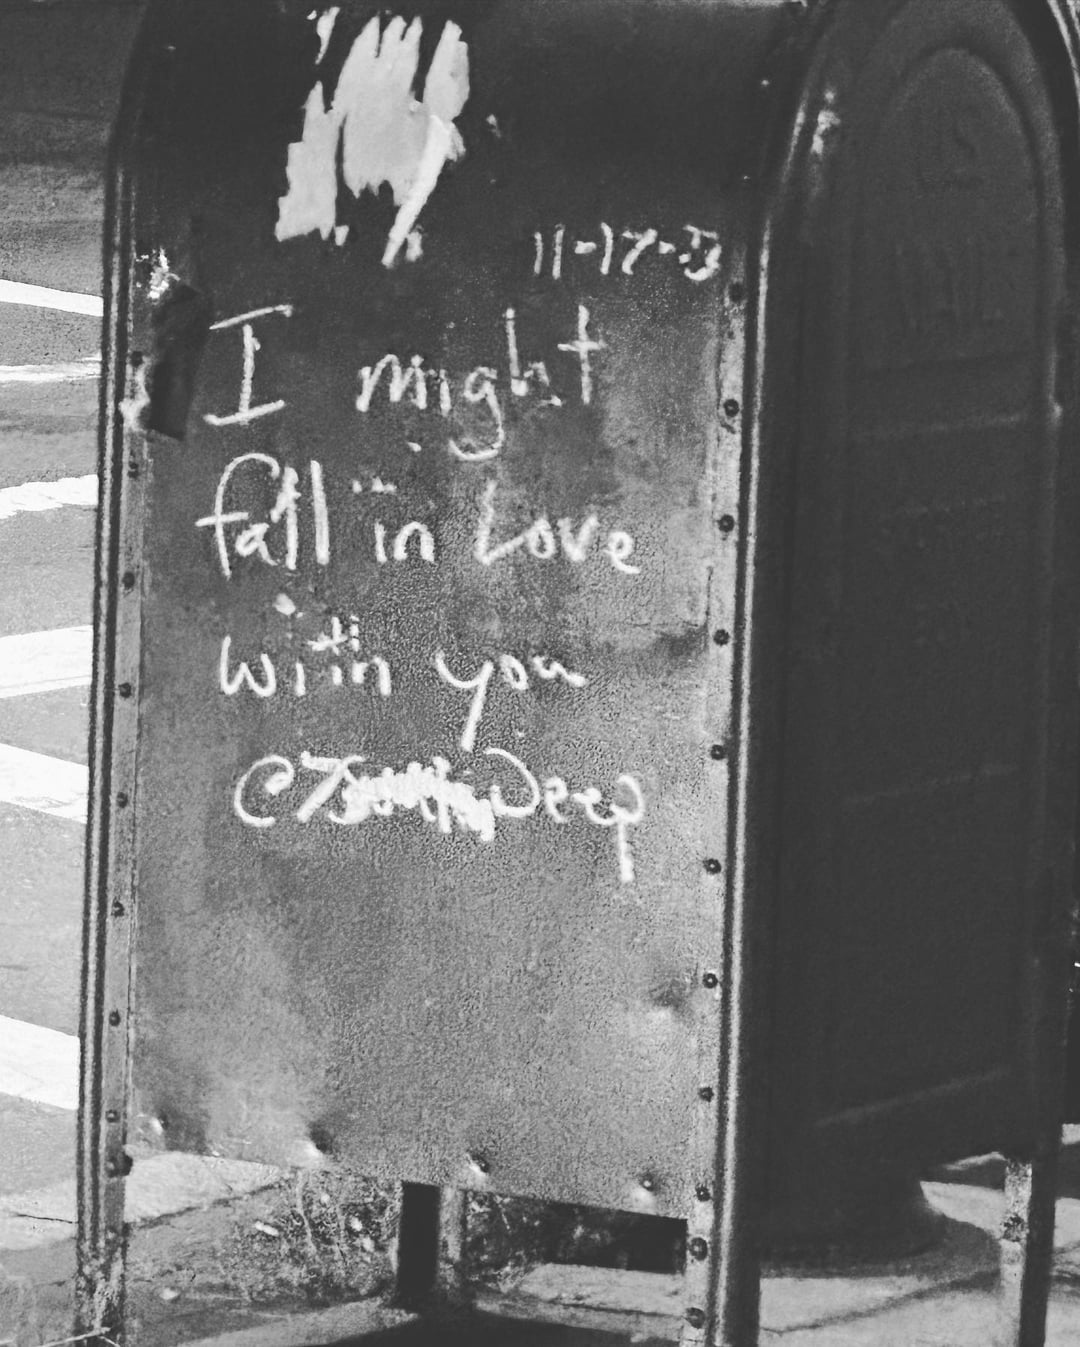 11-17-13
I might
fall in Love
with you
Deep